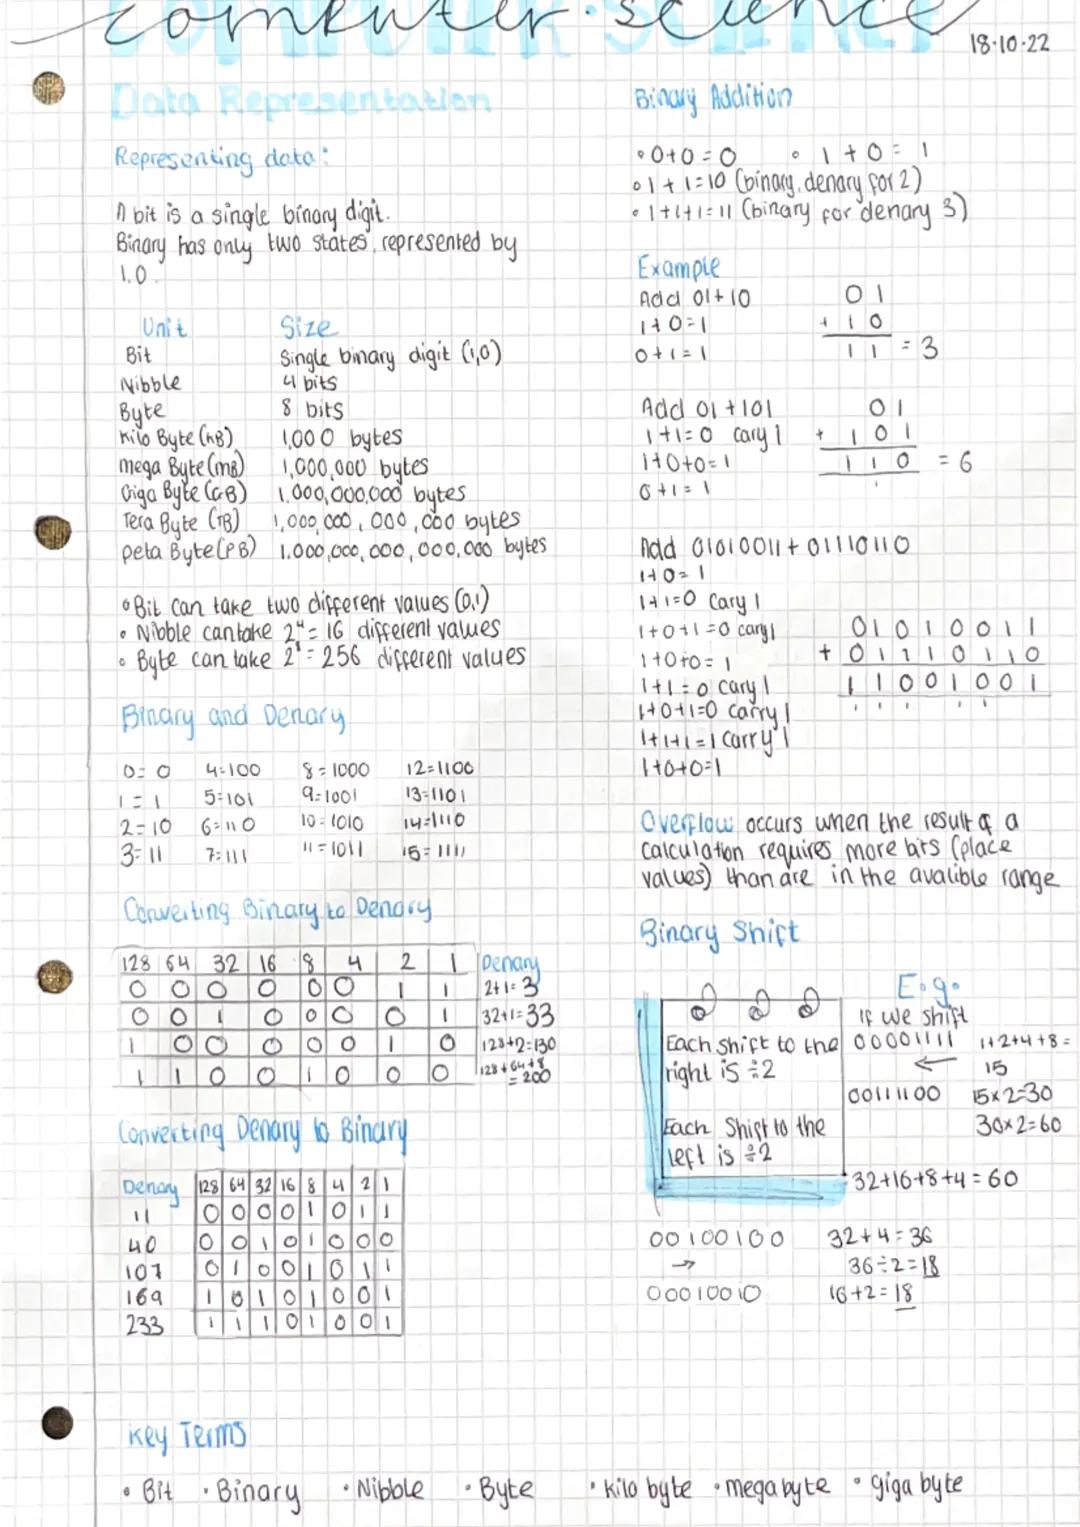 computer science
COMPUTER SCIENCE
18·10·22
Data Representation
Representing data:
A bit is a single binary digit.
Binary has only two states, represented by
1.0.
Unit Size
Bit Single binary digit (1,0)
Nibble 4 bits
Byte 8 bits
Kilo Byte (KB) 1,000 bytes
Mega Byte (MB) 1,000,000 bytes
Giga Byte (GB) 1,000,000,000 bytes
Tera Byte (TB) 1,000,000,000,000 bytes
peta Byte (PB) 1,000,000,000,000,000 bytes
• Bit can take two different values (0,1)
• Nibble can take 2⁴ = 16 different values
• Byte can take 2⁸ = 256 different values
Binary and Denary
0=0 4=100 8=1000 12=1100
1=1 5=101 9=1001 13=1101
2=10 6=110 10=1010 14=1110
3=11 7=111 11=1011 15=1111
Converting Binary to Denary
128 64 32 16 8 4 2 1 Denary
0 0 0 0 0 0 1 1 2+1=3
0 0 1 0 0 0 0 1 32+1=33
1 0 0 0 0 0 1 0 128+2=130
1 1 0 0 1 0 0 0 128+64+8
=200
Converting Denary to Binary
Denary 128 64 32 16 8 4 2 1
11 0 0 0 0 1 0 1 1
40 0 0 1 0 1 0 0 0
107 0 1 0 0 1 0 1 1
169 1 0 1 0 1 0 0 1
233 1 1 1 0 1 0 0 1
Key Terms
• Bit • Binary • Nibble • Byte • kilo byte • megabyte • giga byte
Binary Addition
• 0+0=0 • 1+0=1
• 1+1=10 (binary, denary for 2)
• 1+1+1=11 (binary for denary 3)
Example
Add 01+10
1+0=1
0+1=1
01
+ 10
11 = 3
Add 01+101
1+1=0 cary 1
1+0+0=1
0+1=1
01
+ 101
110 = 6
1
Add 01010011+01110110
1+0=1
1+1=0 Cary 1
1+0+1=0 cary 1
1+0+0=1
1+1=0 Cary 1
1+0+1=0 carry 1
1+1+1=1 Carry 1
1+0+0=1
01010011
+ 01110110
11001001
1 1 1 1 1
Overflow occurs when the result of a
calculation requires more bits (place
values) than are in the avalible range
Binary Shift
Each shift to the
right is ÷2
Each Shift to the
left is ÷2
E.g.
If we shift
00001111 1+2+4+8=
← 15
00111100 15×2=30
30×2=60
32+16+8+4=60
00100100 32+4=36
→ 36÷2=18
00010010 16+2=18